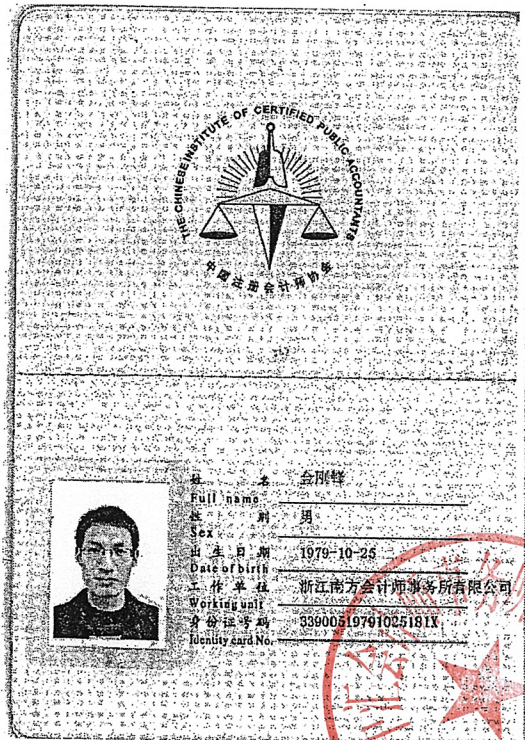 THE CHINESE INSTITUTE OF CERTIFIED PUBLIC ACCOUNTANTS
中国注册会计师协会
姓 名 金刚锋
Full name
性 别 男
Sex
出 生 日 期 1979-10-25
Date of birth
工 作 单 位 浙江南方会计师事务所有限公司
Working unit
身 份 证 号 码 33900519791025181X
Identity card No.